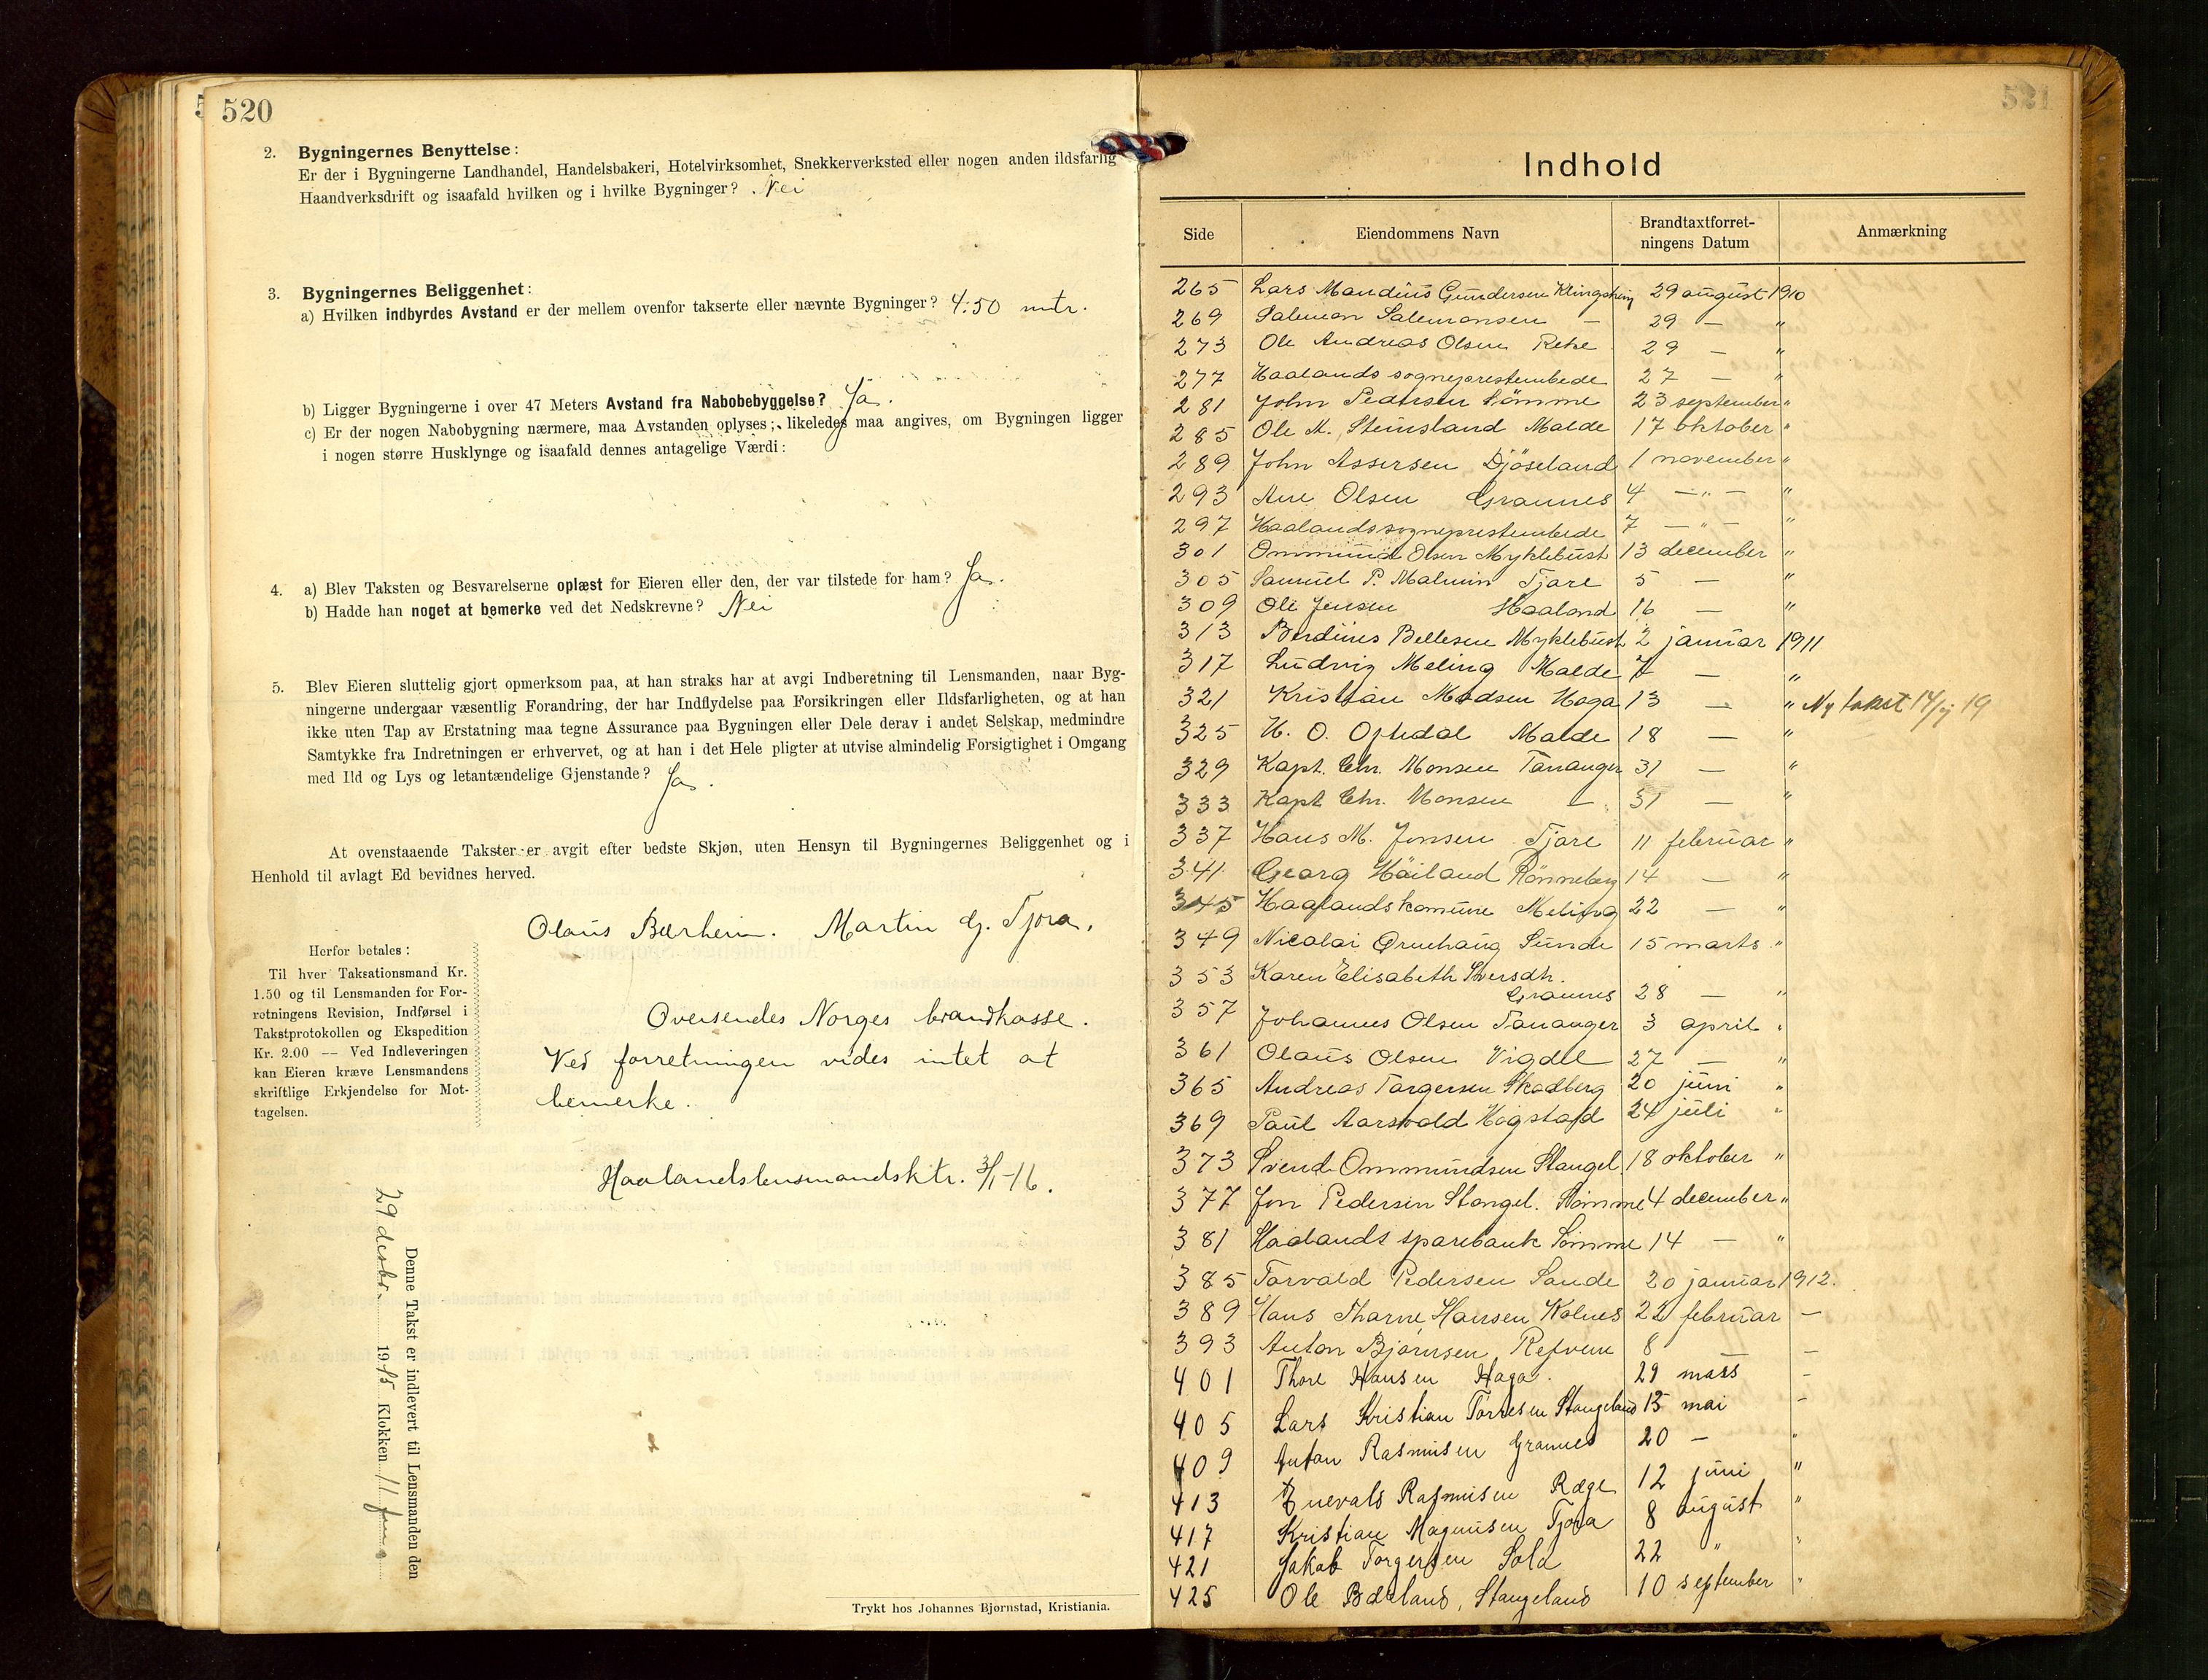 520
2. Bygningernes Benyttelse:
Er der i Bygningerne Landhandel, Handelsbakeri, Hotelvirksomhet, Snekkerverksted eller nogen anden ildsfarlig
Haandverksdrift og isaafald hvilken og i hvilke Bygninger? Nei
3. Bygningernes Beliggenhet:
a) Hvilken indbyrdes Avstand er der mellem ovenfor takserte eller nævnte Bygninger? 4.50 mtr.
b) Ligger Bygningerne i over 47 Meters Avstand fra Nabobebyggelse? Ja.
c) Er der nogen Nabobygning nærmere, maa Avstanden oplyses; likeledes maa angives, om Bygningen ligger
i nogen større Husklynge og isaafald dennes antagelige Værdi:
4. a) Blev Taksten og Besvarelserne oplæst for Eieren eller den, der var tilstede for ham? Ja.
b) Hadde han noget at bemerke ved det Nedskrevne? Nei
5. Blev Eieren sluttelig gjort opmerksom paa, at han straks har at avgi Indberetning til Lensmanden, naar Byg-
ningerne undergaar væsentlig Forandring, der har Indflydelse paa Forsikringen eller Ildsfarligheten, og at han
ikke uten Tap av Erstatning maa tegne Assurance paa Bygningen eller Dele derav i andet Selskap, medmindre
Samtykke fra Indretningen er erhvervet, og at han i det Hele pligter at utvise almindelig Forsigtighet i Omgang
med Ild og Lys og letantændelige Gjenstande? Ja.
At ovenstaaende Takster er avgit efter bedste Skjøn, uten Hensyn til Bygningernes Beliggenhet og i
Henhold til avlagt Ed bevidnes herved.
Olaus Bærheim. Martin G. Tjora.
Herfor betales:
Til hver Taksationsmand Kr.
1.50 og til Lensmanden for For-
retningens Revision, Indførsel i
Takstprotokollen og Ekspedition
Kr. 2.00 — Ved Indleveringen
kan Eieren kræve Lensmandens
skriftlige Erkjendelse for Mot-
tagelsen.
Oversendes Norges brandkasse.
Ved forretningen vides intet at
bemerke.
Haalandslensmandsktr. 3/1-16.
Denne Takst er indlevert til Lensmanden den
29 desbr. 1915 Klokken 11 fm.
Trykt hos Johannes Bjørnstad, Kristiania.
521
Indhold
Side Eiendommens Navn Brandtaxtforret-ningens Datum Anmærkning
265 Lars Mandius Gundersen 29 august 1910
269 Salemon Salemonsen — 29 — "
273 Ole Andreas Olsen Reke 29 — "
277 Haalands sogneprestembede 27 — "
281 John Pedersen Sömme 23 september "
285 Ole M. Steinsland Malde 17 oktober "
289 John Assersen Djöseland 1 november "
293 Ane Olsen Grannes 4 — " — "
297 Haalands sogneprestembede 7 — " — "
301 Ommund Olsen Myklebust 13 december "
305 Samuel P. Malmin Tjare 5 — "
309 Ole Jensen Haaland 16 — "
313 Berdines Bellesen Myklebust 2 januar 1911
317 Ludvig Meling Malde 7 — "
321 Kristian Madsen Haga 13 — " Ny takst 14/ 19
325 H. O. Opledal Malde 18 — "
329 Kapt. Chr. Monsen Tananger 31 — "
333 Kapt Chr. Monsen — 31 — "
337 Hans M. Jonsen Tjare 11 februar "
341 Georg Häiland Rönneberg 14 — "
345 Haalands komune Meling 22 — "
349 Nicolai Ørnehaug Sunde 15 marts "
353 Karen Elisabeth Sversdtr.
Grannes 28 — "
357 Johannes Olsen Tananger 3 april "
361 Olaus Olsen Vigdel 27 — "
365 Andreas Torgersen Skadberg 20 juni "
369 Paul Aarsvold Hogstad 24 juli "
373 Svend Ommundsen Stangel. 18 oktober "
377 Jon Pedersen Stangel. Sömme 4 december "
381 Haalands sparebank Sömme 14 — "
385 Torvald Pedersen Sande 20 januar 1912.
389 Hans Tharne Hansen Kolnes 22 februar —
393 Anton Bjørnsen, Refvem 8 —
401 Thore Hansen Haga. 29 mars –
405 Lars Kristian Torresen Stangeland 13 mai –
409 Anton Rasmusen Grannes 20 — "
413 Enevald Rasmusen Ræge 12 juni "
417 Kristian Magnusen Tjora 8 august "
421 Jakob Torgersen Sola 22 " "
425 Ole Bærland, Stangeland 10 september "